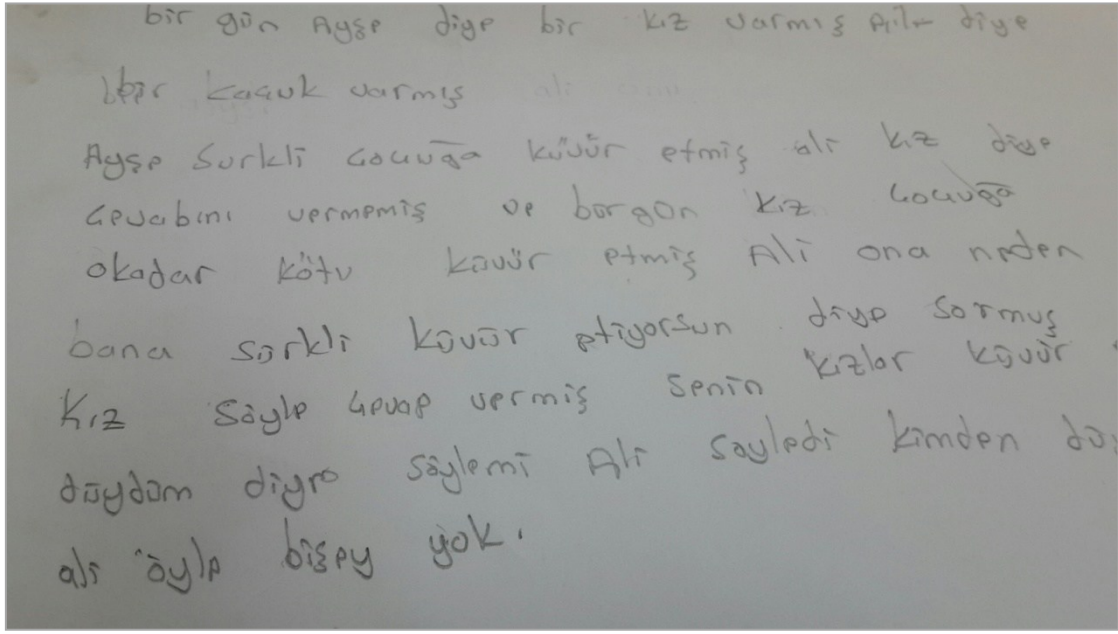 bir gün Ayşe diye bir kız varmış Ali diye
bir kocuk varmış
Ayşe Surkli cocuğa küvür etmiş ali kız diye
cevabını vermemiş ve borgon kız cocuğa
okadar kötü küvür etmiş Ali ona neden
bana sürkli küvür etiyorsun diye sormuş
kız söyle cevap vermiş senin kızlar küvür
düydüm diyro söylemi Ali soyledi kimden
ali öyle bişey yok.